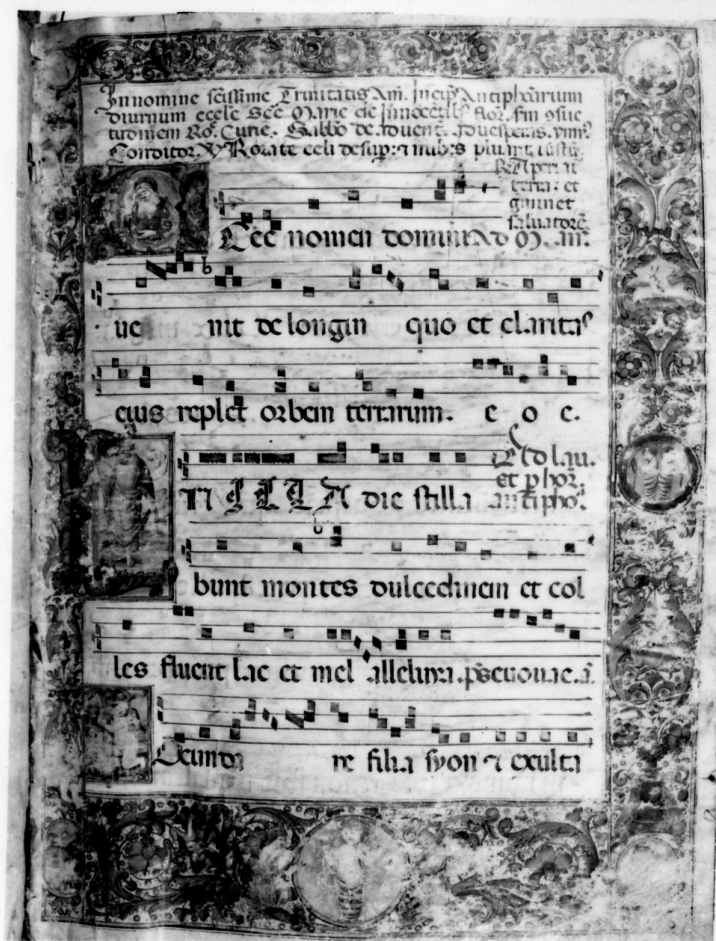 In nomine scissime Trinitatis Am. Incip Antiphonarium
diurnum eccle Sce Marie de Innocetib flor. sm osue
tudinem Ro. Curie. Sabbo de Aduent. Ad uesperas. ymn
Conditor. V Rorate celi desup: 7 nubes pluant iustu
terra: et
gminet
saluatore
Ecce nomen domini Ad M. an.
ue nit de longin quo et claritas
eius replet orbem terrarum. e o e.
Ad lau.
et p hor.
IN ILLA die stilla antipho.
bunt montes dulcedinem et col
les fluent lac et mel alleluya. ps euouae. a.
Iocunda re filia syon 7 exulta